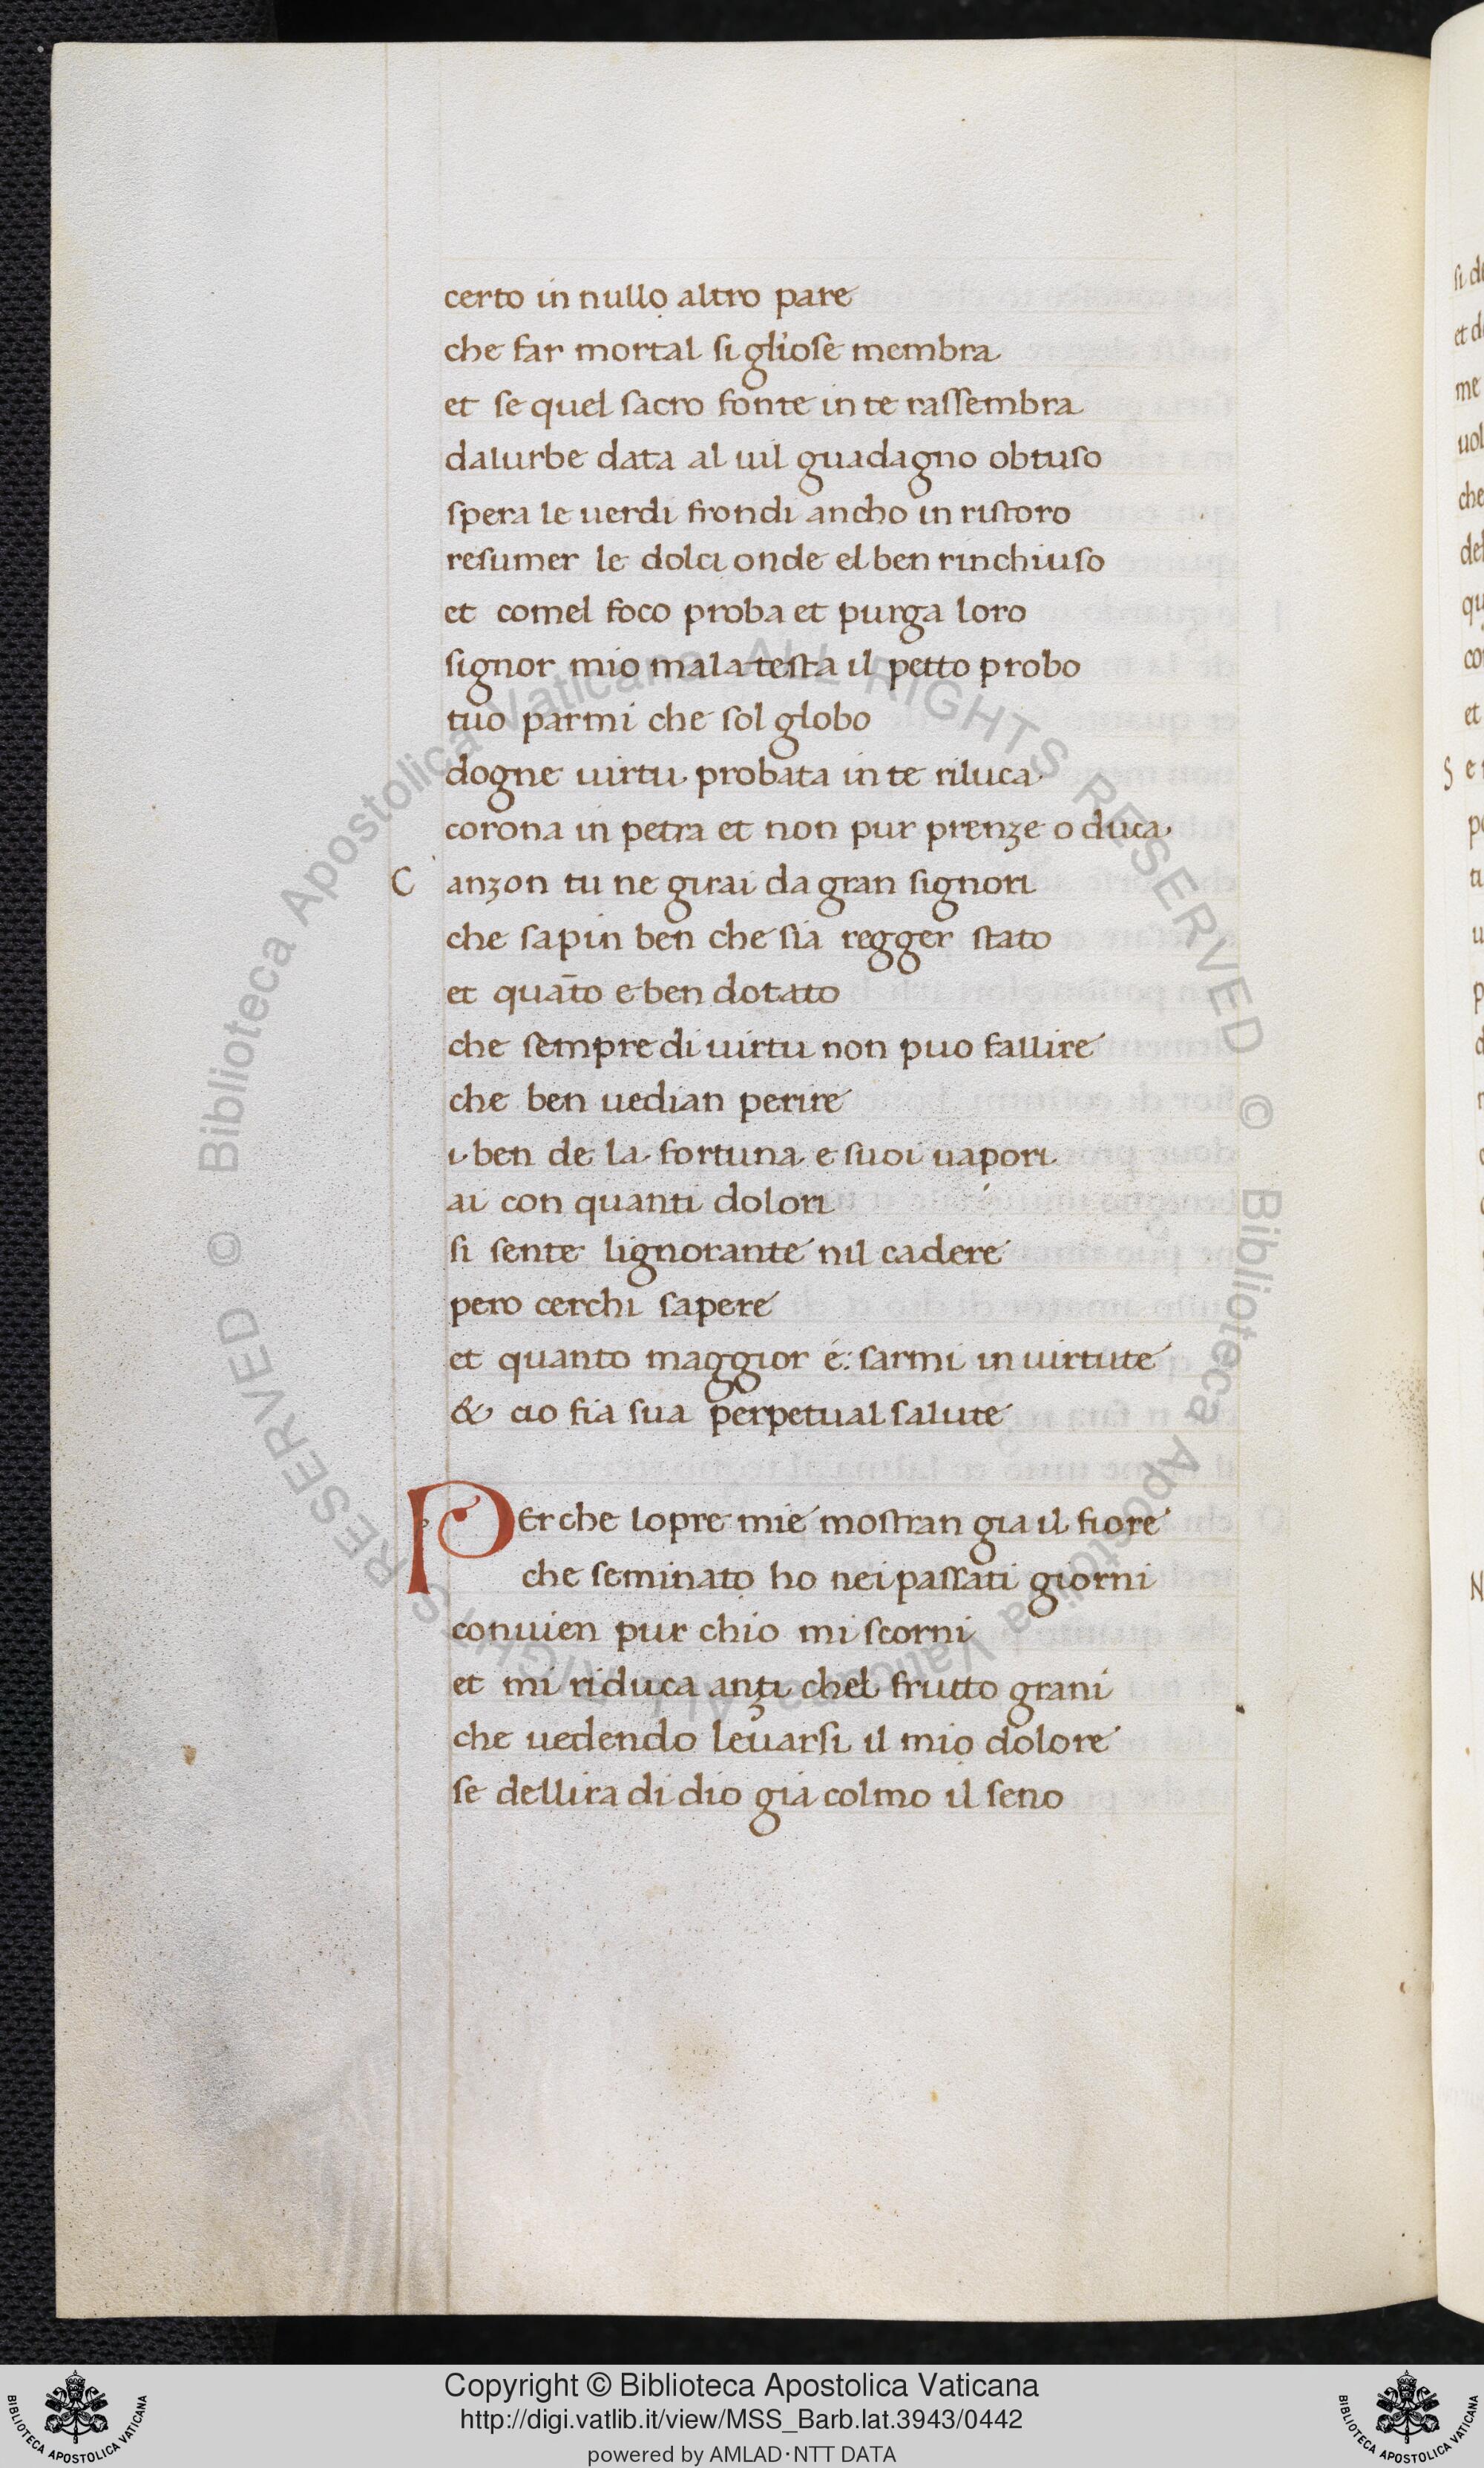 certo in nullo altro pare
che far mortal si gl'iose membra
et se quel sacro fonte in te rassembra
dalurbe data al uil guadagno obtuso
spera le uerdi frondi ancho in ristoro
resumer le dolci onde el ben rinchiuso
et comel foco proba et purga loro
signor mio malatesta il petto probo
tuo parmi che sol globo
dogne uirtu probata in te riluca
corona in petra et non pur prenze o duca
C anzon tu ne girai da gran signori
che sapin ben che sia regger stato
et quāto e ben dotato
che sempre di uirtu non puo fallire
che ben uedian perire
i ben de la fortuna e suoi uapori
ai con quanti dolori
si sente lignorante nil cadere
pero cerchi sapere
et quanto maggior é: sarmi in uirtute
& cio fia sua perpetual salute
PErche lopre mie mostran gia il fiore
che seminato ho nei passati giorni
conuien pur chio mi scorni
et mi riduca anzi chel frutto grani
che uedendo leuarsi il mio dolore
se dellira di dio gia colmo il seno
© Biblioteca Apostolica Vaticana ALL RIGHTS RESERVED
© Biblioteca Apostolica Vaticana ALL RIGHTS RESERVED
Copyright © Biblioteca Apostolica Vaticana
http://digi.vatlib.it/view/MSS_Barb.lat.3943/0442
powered by AMLAD·NTT DATA
BIBLIOTECA APOSTOLICA VATICANA
BIBLIOTECA APOSTOLICA VATICANA